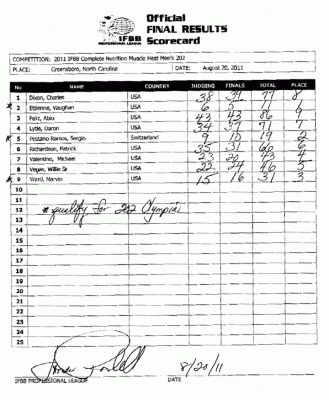 IFBB
PROFESSIONAL LEAGUE
Official
FINAL RESULTS
Scorecard
COMPETITION: 2011 IFBB Complete Nutrition Muscle Heat Men's 202
PLACE: Greensboro, North Carolina DATE: August 20, 2011
No NAME COUNTRY JUDGING FINALS TOTAL PLACE
1 Dixon, Charles USA 38 39 77 8
2 Ettienne, Vaughan USA 6 5 11 1
3 Feliz, Abiu USA 43 43 86 9
4 Lytle, Daron USA 34 37 71 7
5 Pestano Ramos, Sergio Switzerland 9 10 19 2
6 Richardson, Patrick USA 35 31 66 6
7 Valentino, Michael USA 23 20 43 4
8 Vegas, Willie Sr USA 22 24 46 5
9 Ward, Marvin USA 15 16 31 3
10
11
12 * qualify for 202 Olympia
13
14
15
16
17
18
19
20
21
22
23
24
25
8/20/11
IFBB PROFESSIONAL LEAGUE DATE